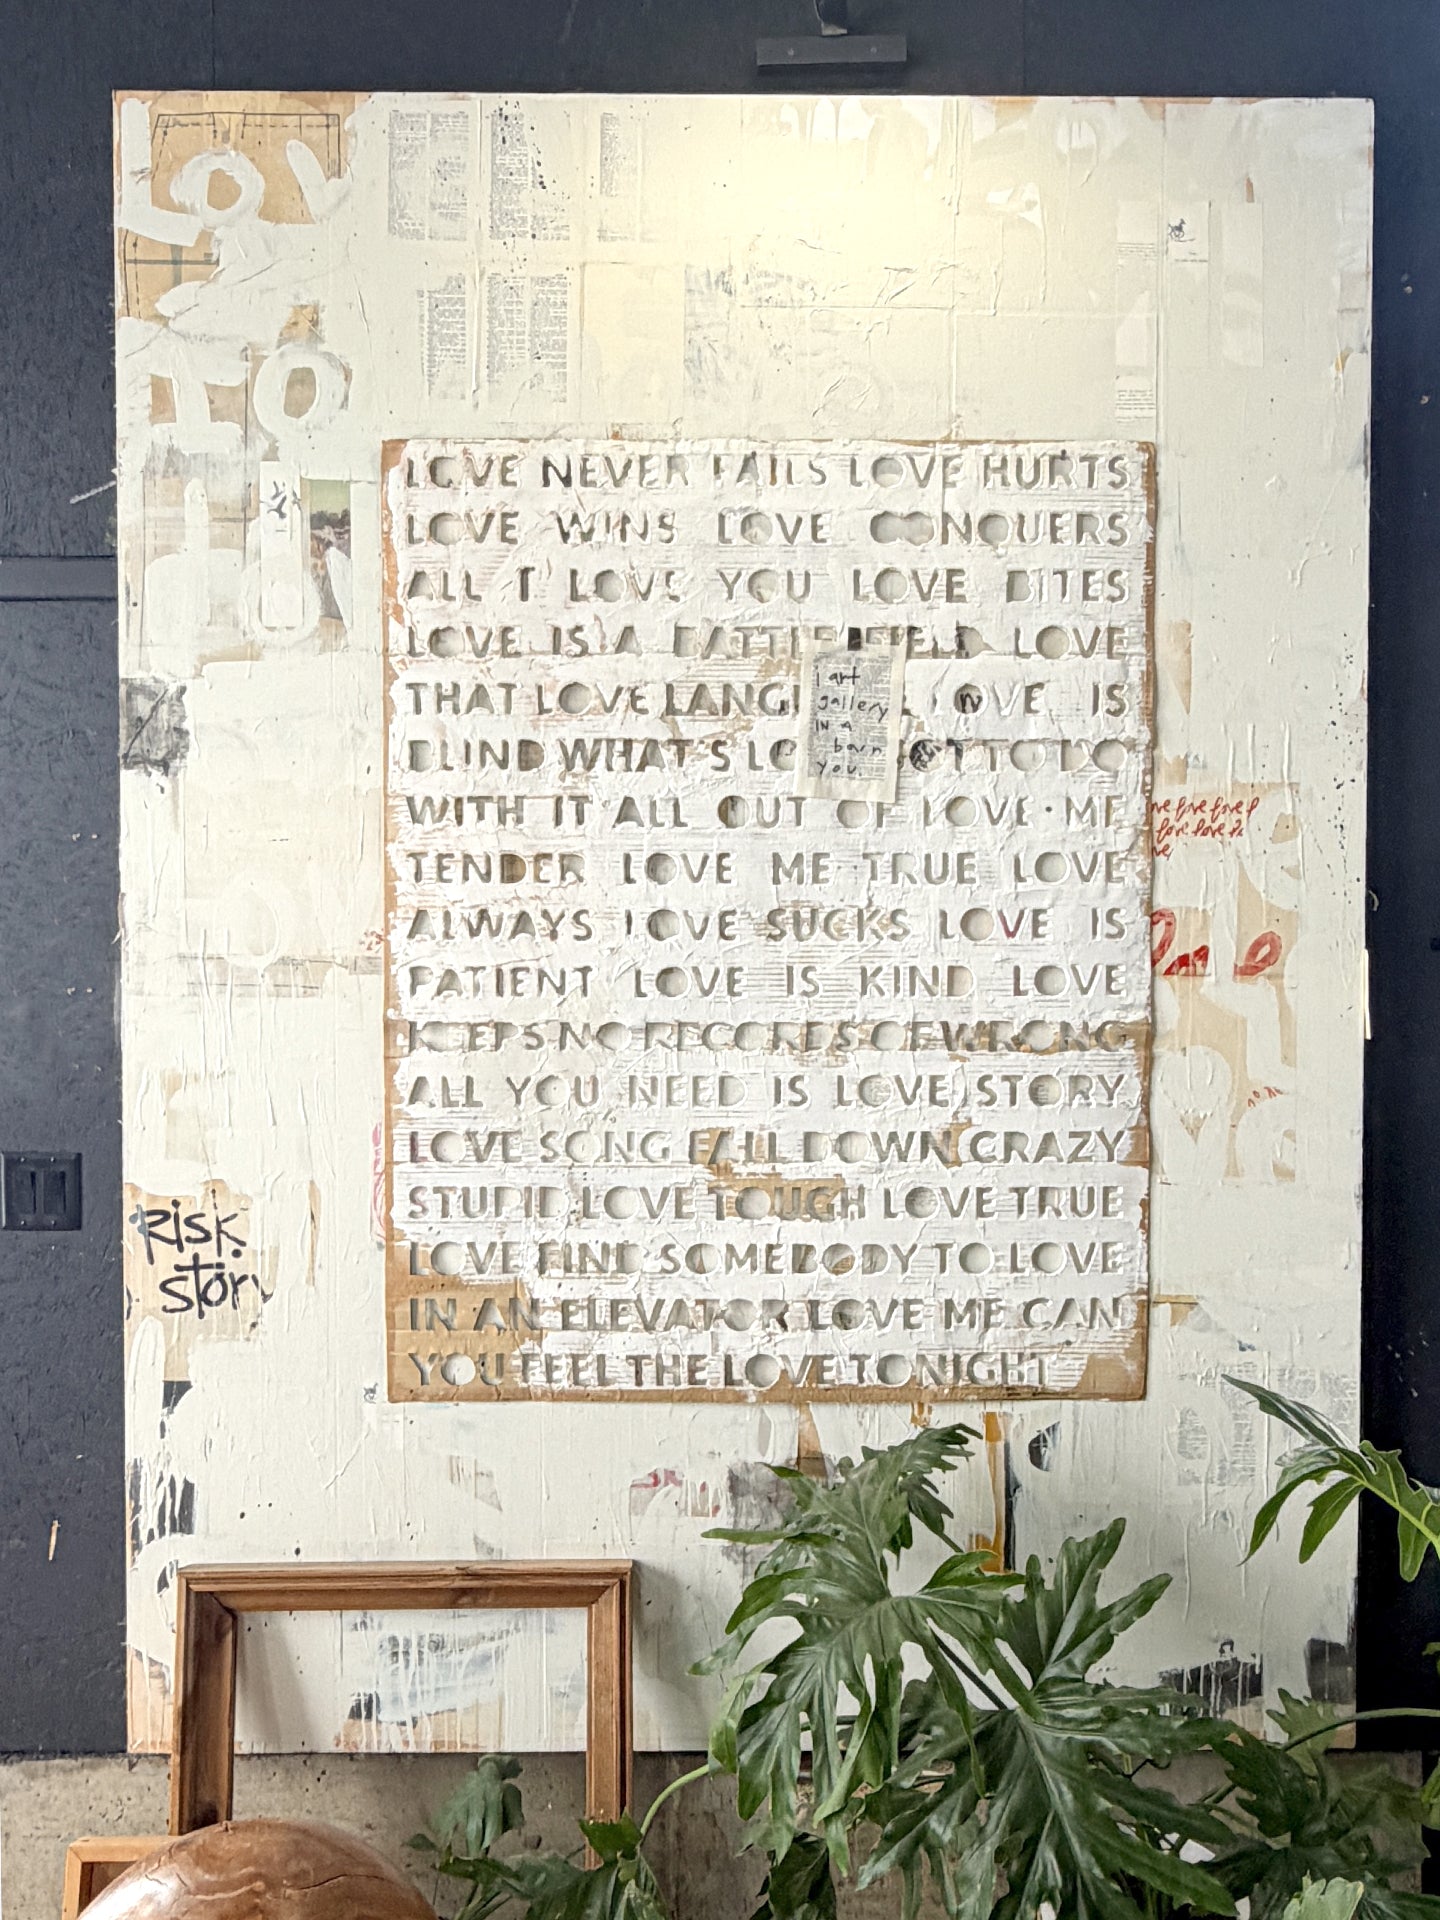 LOV
TO
LOVE NEVER FAILS LOVE HURTS
LOVE WINS LOVE CONQUERS
ALL I LOVE YOU LOVE BITES
LOVE IS A BATTLEFIELD LOVE
THAT LOVE LANG LOVE IS
BLIND WHAT'S LO GOT TO DO
WITH IT ALL OUT OF LOVE · ME
TENDER LOVE ME TRUE LOVE
ALWAYS LOVE SUCKS LOVE IS
PATIENT LOVE IS KIND LOVE
KEEPS NO RECORDS OF WRONG
ALL YOU NEED IS LOVE STORY
LOVE SONG FALL DOWN CRAZY
STUPID LOVE TOUGH LOVE TRUE
LOVE FIND SOMEBODY TO LOVE
IN AN ELEVATOR LOVE ME CAN
YOU FEEL THE LOVE TONIGHT
i art
gallery
IN a
barn
you.
love love love
love love
Risk
story